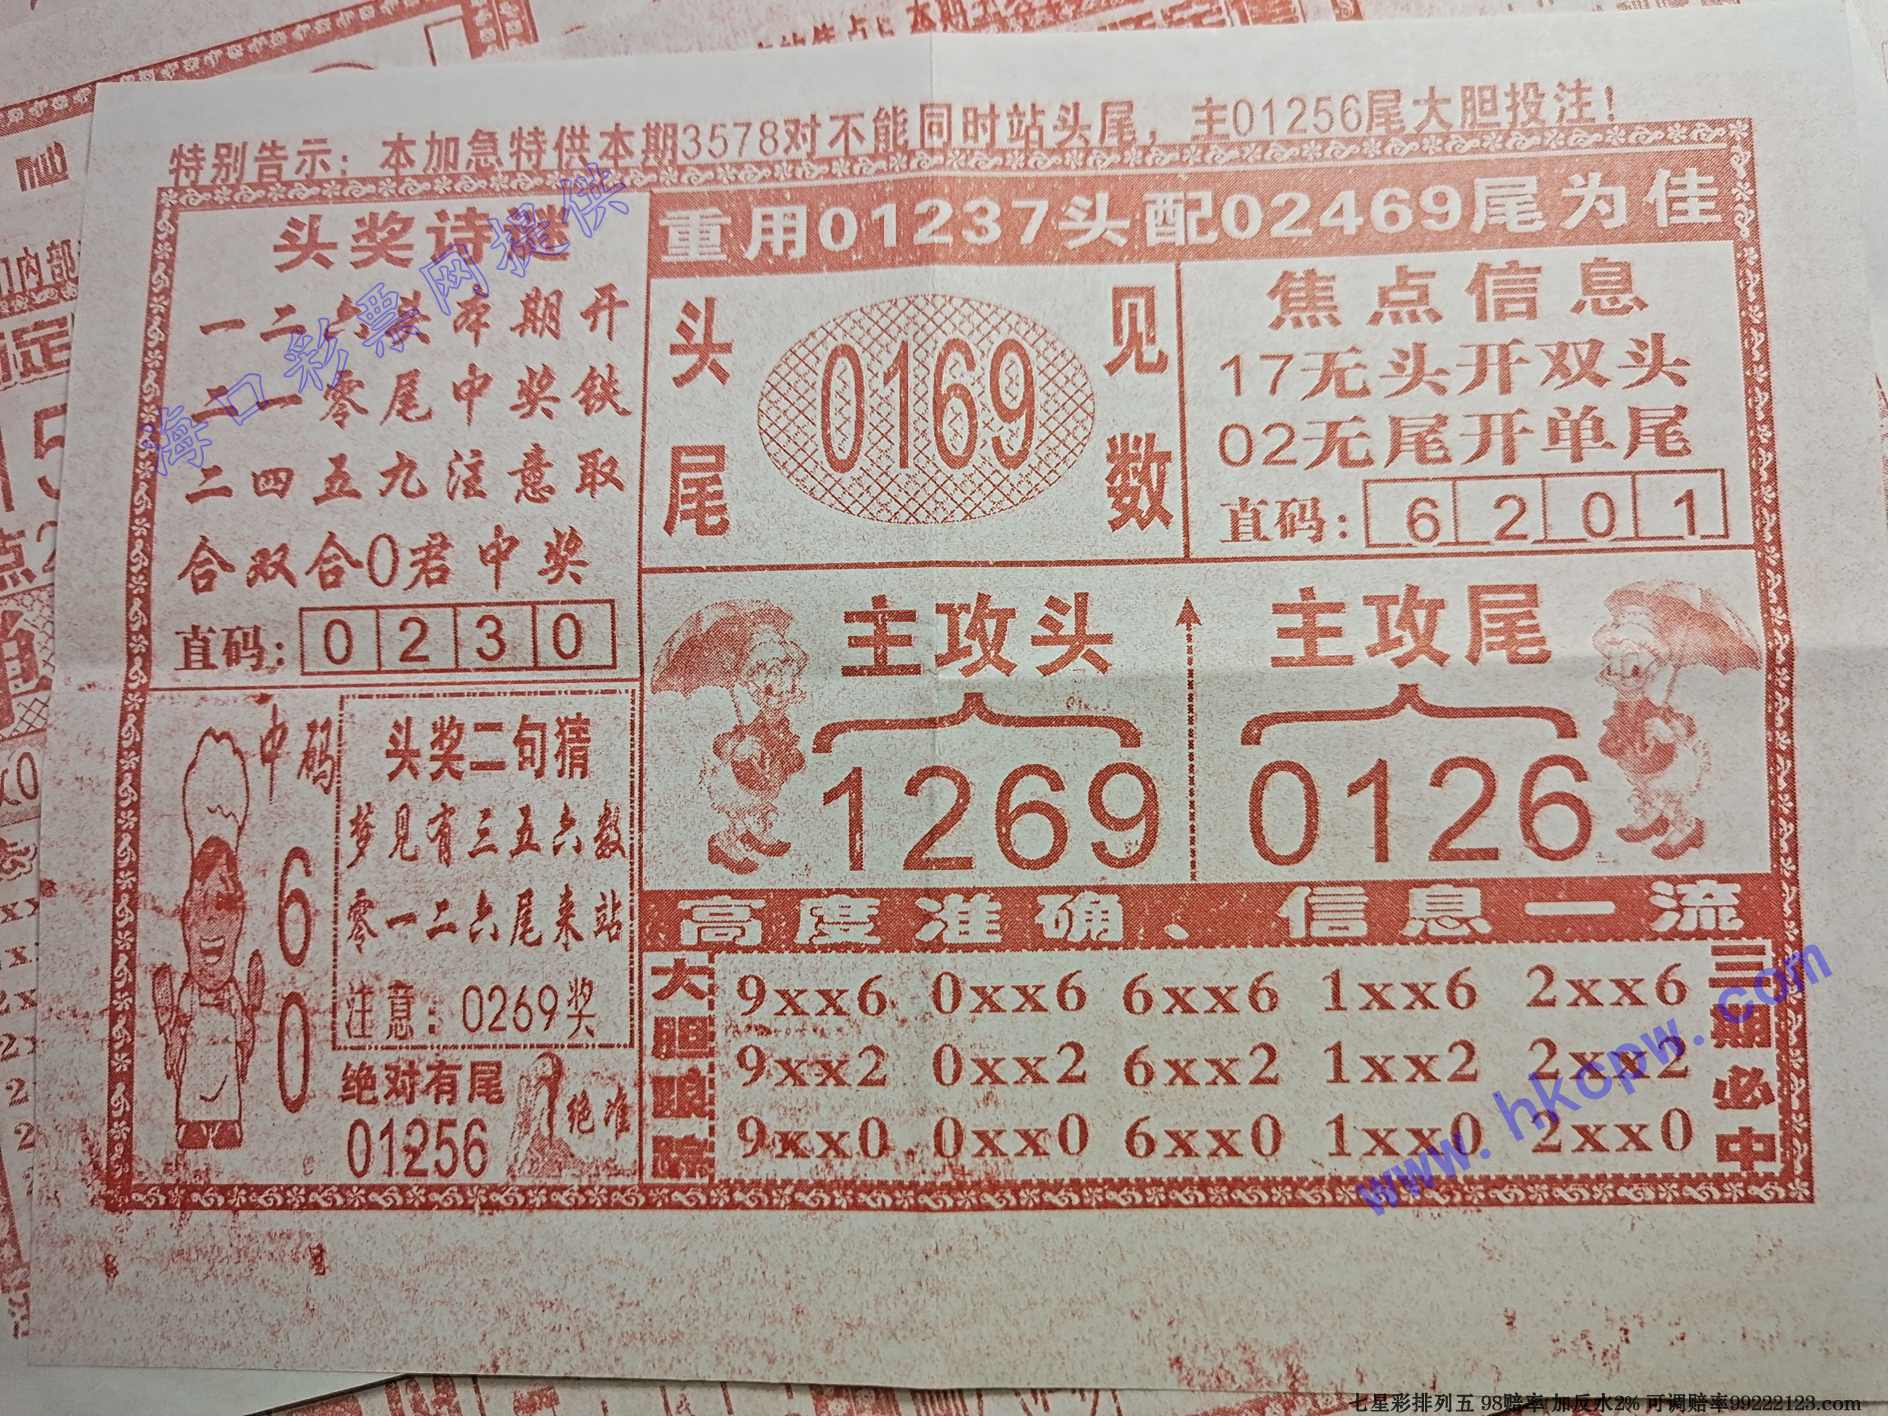 特别告示：本加急特供本期3578对不能同时站头尾，主01256尾大胆投注！
头奖诗谜
一二六头本期开
二一零尾中奖铁
二四五九注意取
合双合0君中奖
直码：0 2 3 0
重用01237头配02469尾为佳
头尾
0169
见数
焦点信息
17无头开双头
02无尾开单尾
直码：6 2 0 1
主攻头
1269
主攻尾
0126
中码
6
0
头奖二句猜
梦见有三五六数
零一二六尾来站
注意：0269奖
绝对有尾
01256
绝准
高度准确、信息一流
大胆跟踪
9xx6 0xx6 6xx6 1xx6 2xx6
9xx2 0xx2 6xx2 1xx2 2xx2
9xx0 0xx0 6xx0 1xx0 2xx0
三期必中
海口彩票网提供
www.hkcpw.com
七星彩排列五 98赔率 加反水2% 可调赔率99222123.com